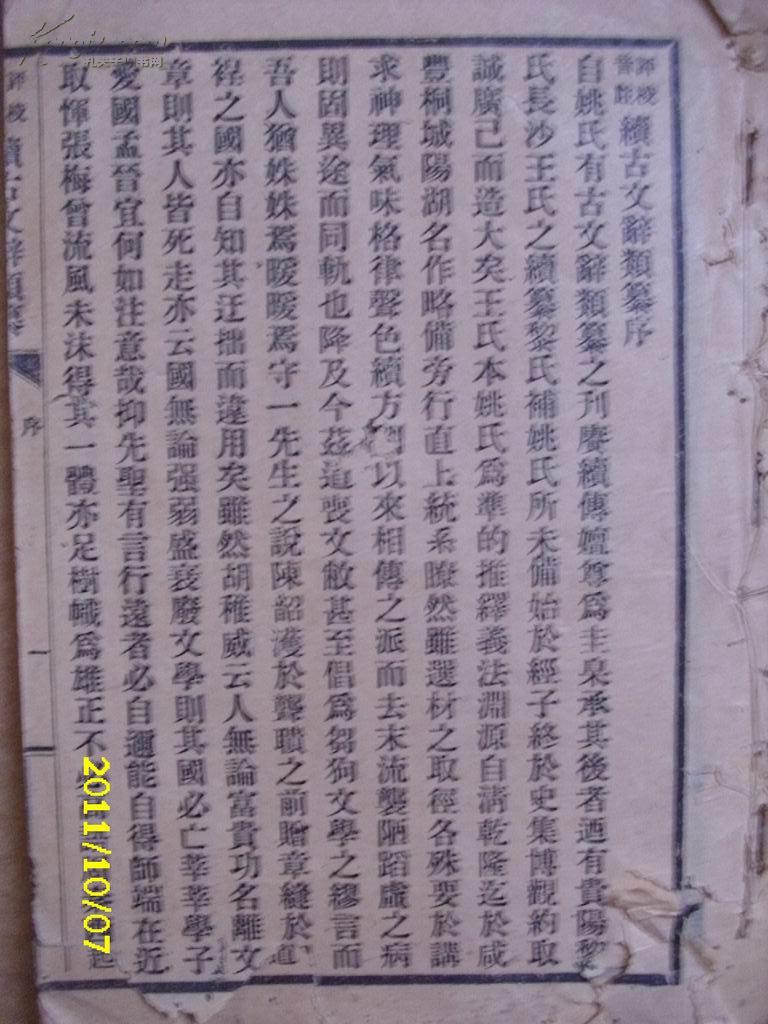 評校
音註
續古文辭類纂序
自姚氏有古文辭類纂之刊賡續傳嬗尊爲圭臬承其後者迺有貴陽黎
氏長沙王氏之續纂黎氏補姚氏所未備始於經子終於史集博觀約取
誠廣己而造大矣王氏本姚氏爲準的推繹義法淵源自淸乾隆迄於咸
豐桐城陽湖名作略備旁行直上統系瞭然雖選材之取徑各殊要於講
求神理氣味格律聲色續方劉以來相傳之派而去末流襲陋蹈虛之病
則固異途而同軌也降及今茲道喪文敝甚至倡爲芻狗文學之繆言而
吾人猶姝姝焉暖暖焉守一先生之說陳韶濩於聾聵之前贈章縫於
裎之國亦自知其迂拙而違用矣雖然胡稚威云人無論富貴功名離文
章則其人皆死走亦云國無論强弱盛衰廢文學則其國必亡莘莘學子
愛國孟晉宜何如注意哉抑先聖有言行遠者必自邇能自得師端在近
取惲張梅曾流風未沫得其一體亦足樹幟爲雄正不必
評校
續古文辭類纂
序
一
2011/10/07
孔夫子旧书网